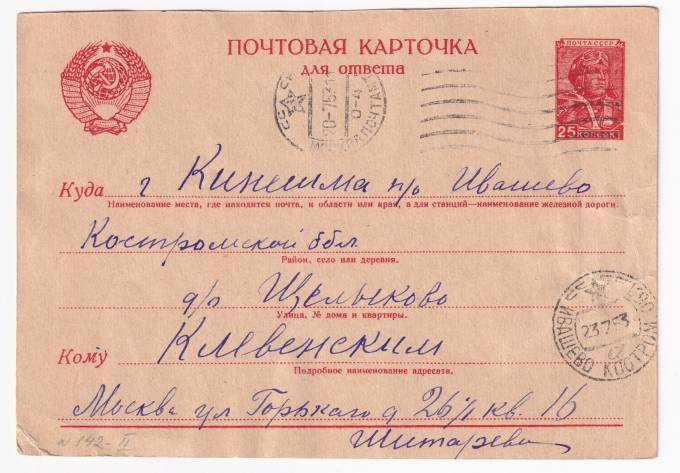 ПОЧТОВАЯ КАРТОЧКА
для ответа
ПОЧТА СССР
25 КОПЕЕК
МОСКВА ПОЧТАМТ
Куда г Кинешма п/о Ивашево
Наименование места, где находится почта, и области или края, а для станций—наименование железной дороги.
Костромской обл
Район, село или деревня.
д/о Щелыково
Улица, № дома и квартиры.
23 7 53
ИВАШЕВО КОСТРОМ ОБЛ
Кому Клевенским
Подробное наименование адресата.
Москва ул Горького д 26/1 кв. 16
Шитарева
N 142-II